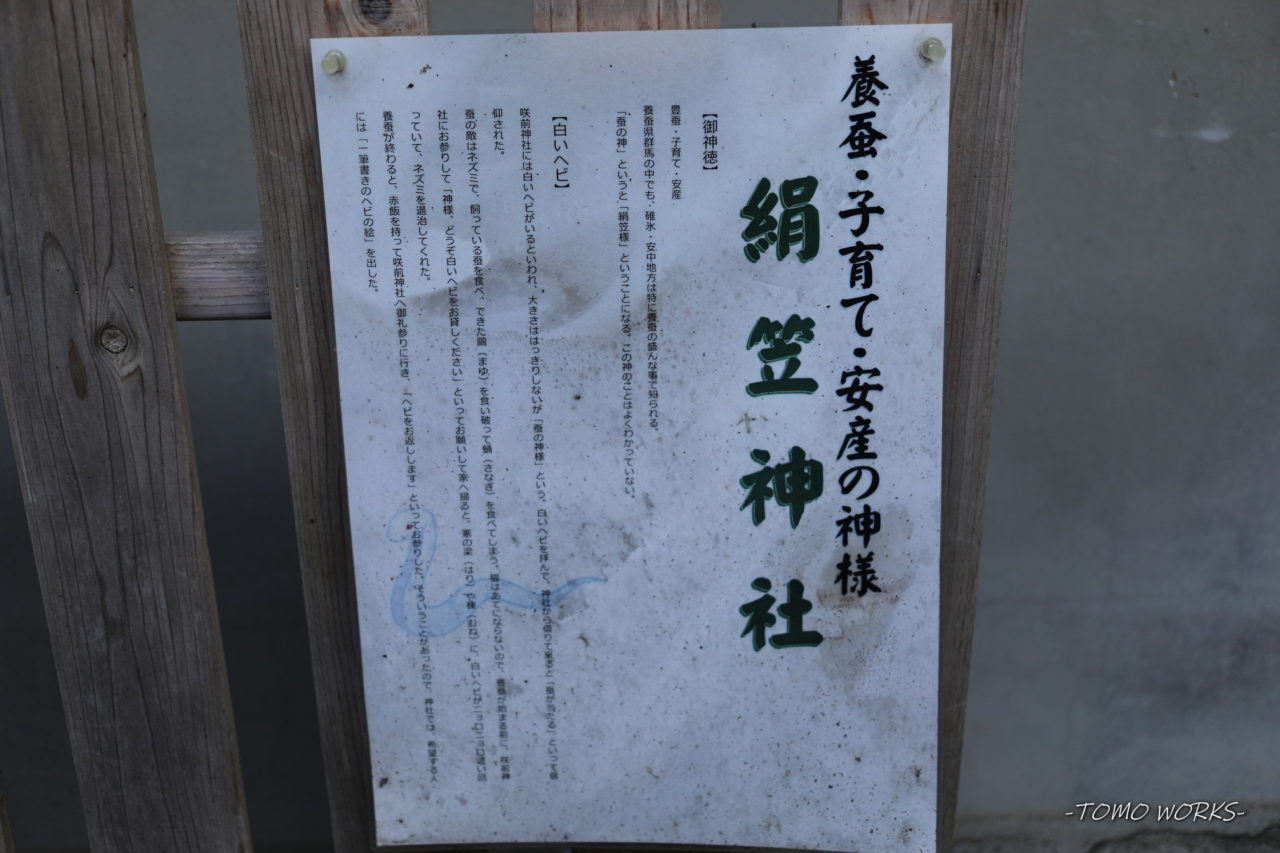 養蚕・子育て・安産の神様
絹笠神社
【御神徳】
豊蚕・子育て・安産
養蚕県群馬の中でも、碓氷・安中地方は特に養蚕の盛んな事で知られる。
「蚕の神」というと「絹笠様」ということになる。この神のことはよくわかっていない。
【白いヘビ】
咲前神社には白いヘビがいるといわれ、大きさははっきりしないが「蚕の神様」という。白いヘビを拝んで、神社から借りて来ると「蚕が当たる」といって信
仰された。
蚕の敵はネズミで、飼っている蚕を食べ、できた繭(まゆ)を食い破って蛹(さなぎ)を食べてしまう。猫はあてにならないので、養蚕が始まる前に、咲前神
社にお参りして「神様、どうぞ白いヘビをお貸しください」といってお願いして家へ帰ると、家の梁(はり)や棟(むね)に、白いヘビがニョロニョロ這い回
っていて、ネズミを退治してくれた。
養蚕が終わると、赤飯を持って咲前神社へ御礼参りに行き、「ヘビをお返しします」といってお参りした。そういうことがあったので、神社では、希望する人
には「一筆書きのヘビの絵」を出した。
-TOMO WORKS-